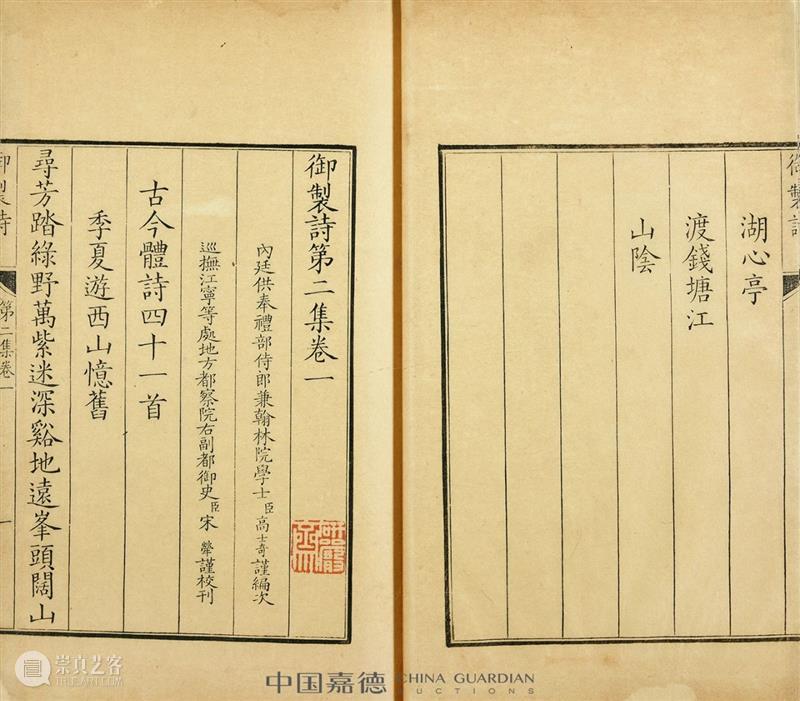 御製詩
湖心亭
渡錢塘江
山陰
御製詩第二集卷一
內廷供奉禮部侍郎兼翰林院學士臣高士奇謹編次
巡撫江寧等處地方都察院右副都御史臣宋犖謹校刊
古今體詩四十一首
季夏遊西山憶舊
尋芳踏綠野萬紫迷深谿地遠峯頭闊山
御製詩 第二集卷一 一
崇真艺客
WWW.TRUEART.COM
中国嘉德 CHINA GUARDIAN AUCTIONS